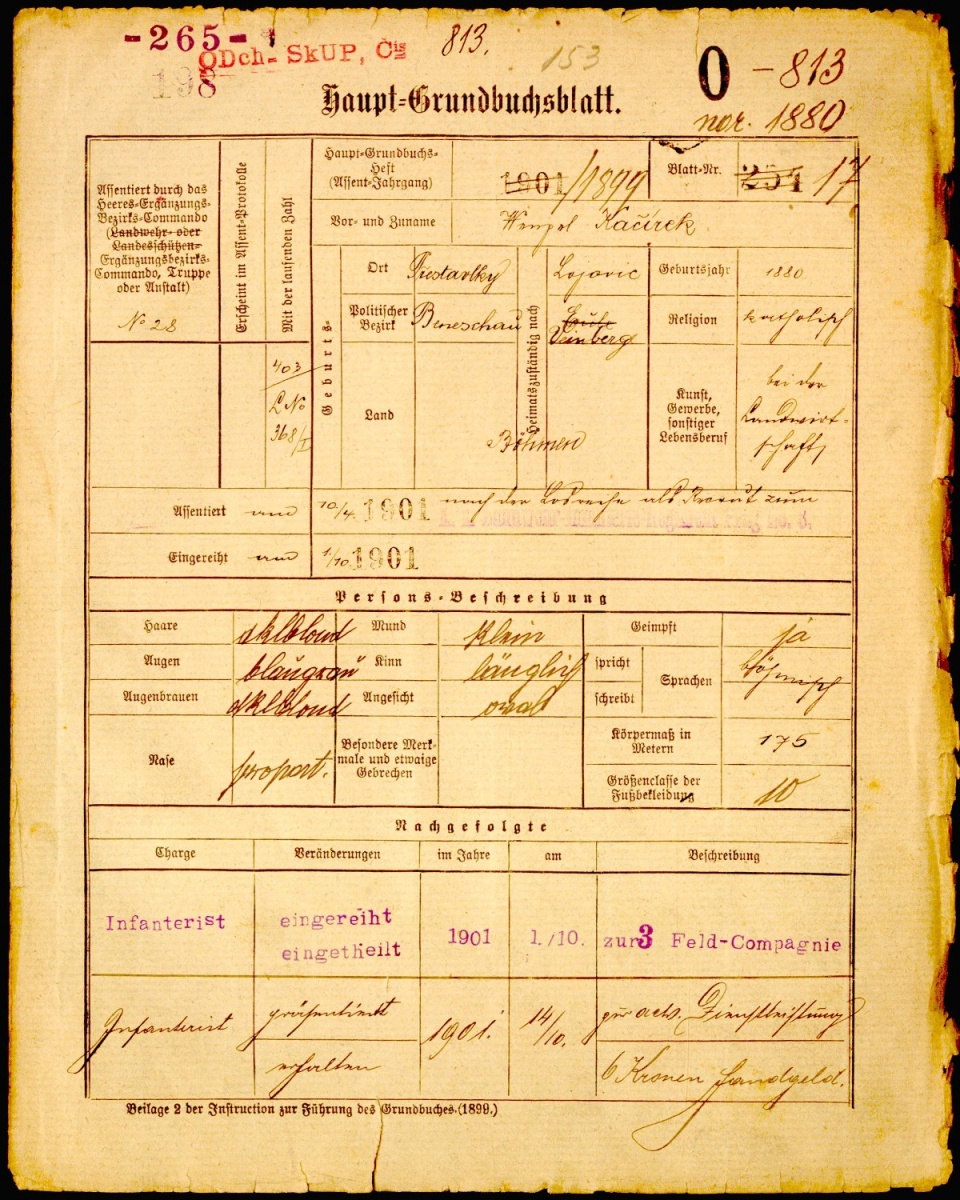 -265-
ODch- SkUP, Čís
198
813.
153
O - 813
nar. 1880
Haupt-Grundbuchsblatt.
Assentiert durch das
Heeres-Ergänzungs-
Bezirks-Commando
(Landwehr- oder
Landesschützen-
Ergänzungsbezirks-
Commando, Truppe
oder Anstalt)
No 28
Erscheint im Assent-Protokolle
Mit der laufenden Zahl
403
LNo
368/I
Haupt-Grundbuchs-
Heft
(Assent-Jahrgang)
1901/1899
Blatt-Nr.
254 17
Vor- und Zuname
Wenzel Kačírek
Geburts-
Ort
Heimatszuständig nach
Lojovic
Geburtsjahr
1880
Politischer
Bezirk
Beneschau
Eule
Weinberg
Religion
katholisch
Land
Böhmen
Kunst,
Gewerbe,
sonstiger
Lebensberuf
bei der
Landwirt-
schaft
Assentiert am 10/4. 1901 nach der Losreihe als Recrut zum
Eingereiht am 1/10. 1901
Persons-Beschreibung
Haare dklblond Mund klein Geimpft ja
Augen blaugrau Kinn länglich spricht Sprachen böhmisch
Augenbrauen dklblond Angesicht oval schreibt
Nase proport. Besondere Merk-
male und etwaige
Gebrechen
Körpermaß in
Metern
175
Größenclasse der
Fußbekleidung
10
Nachgefolgte
Charge Veränderungen im Jahre am Beschreibung
Infanterist eingereiht
eingetheilt 1901 1./10. zur 3 Feld-Compagnie
Infanterist präsentiert 1901. 14/10. zur act. Dienstleistung
erhalten 6 Kronen Handgeld.
Beilage 2 der Instruction zur Führung des Grundbuches.(1899.)